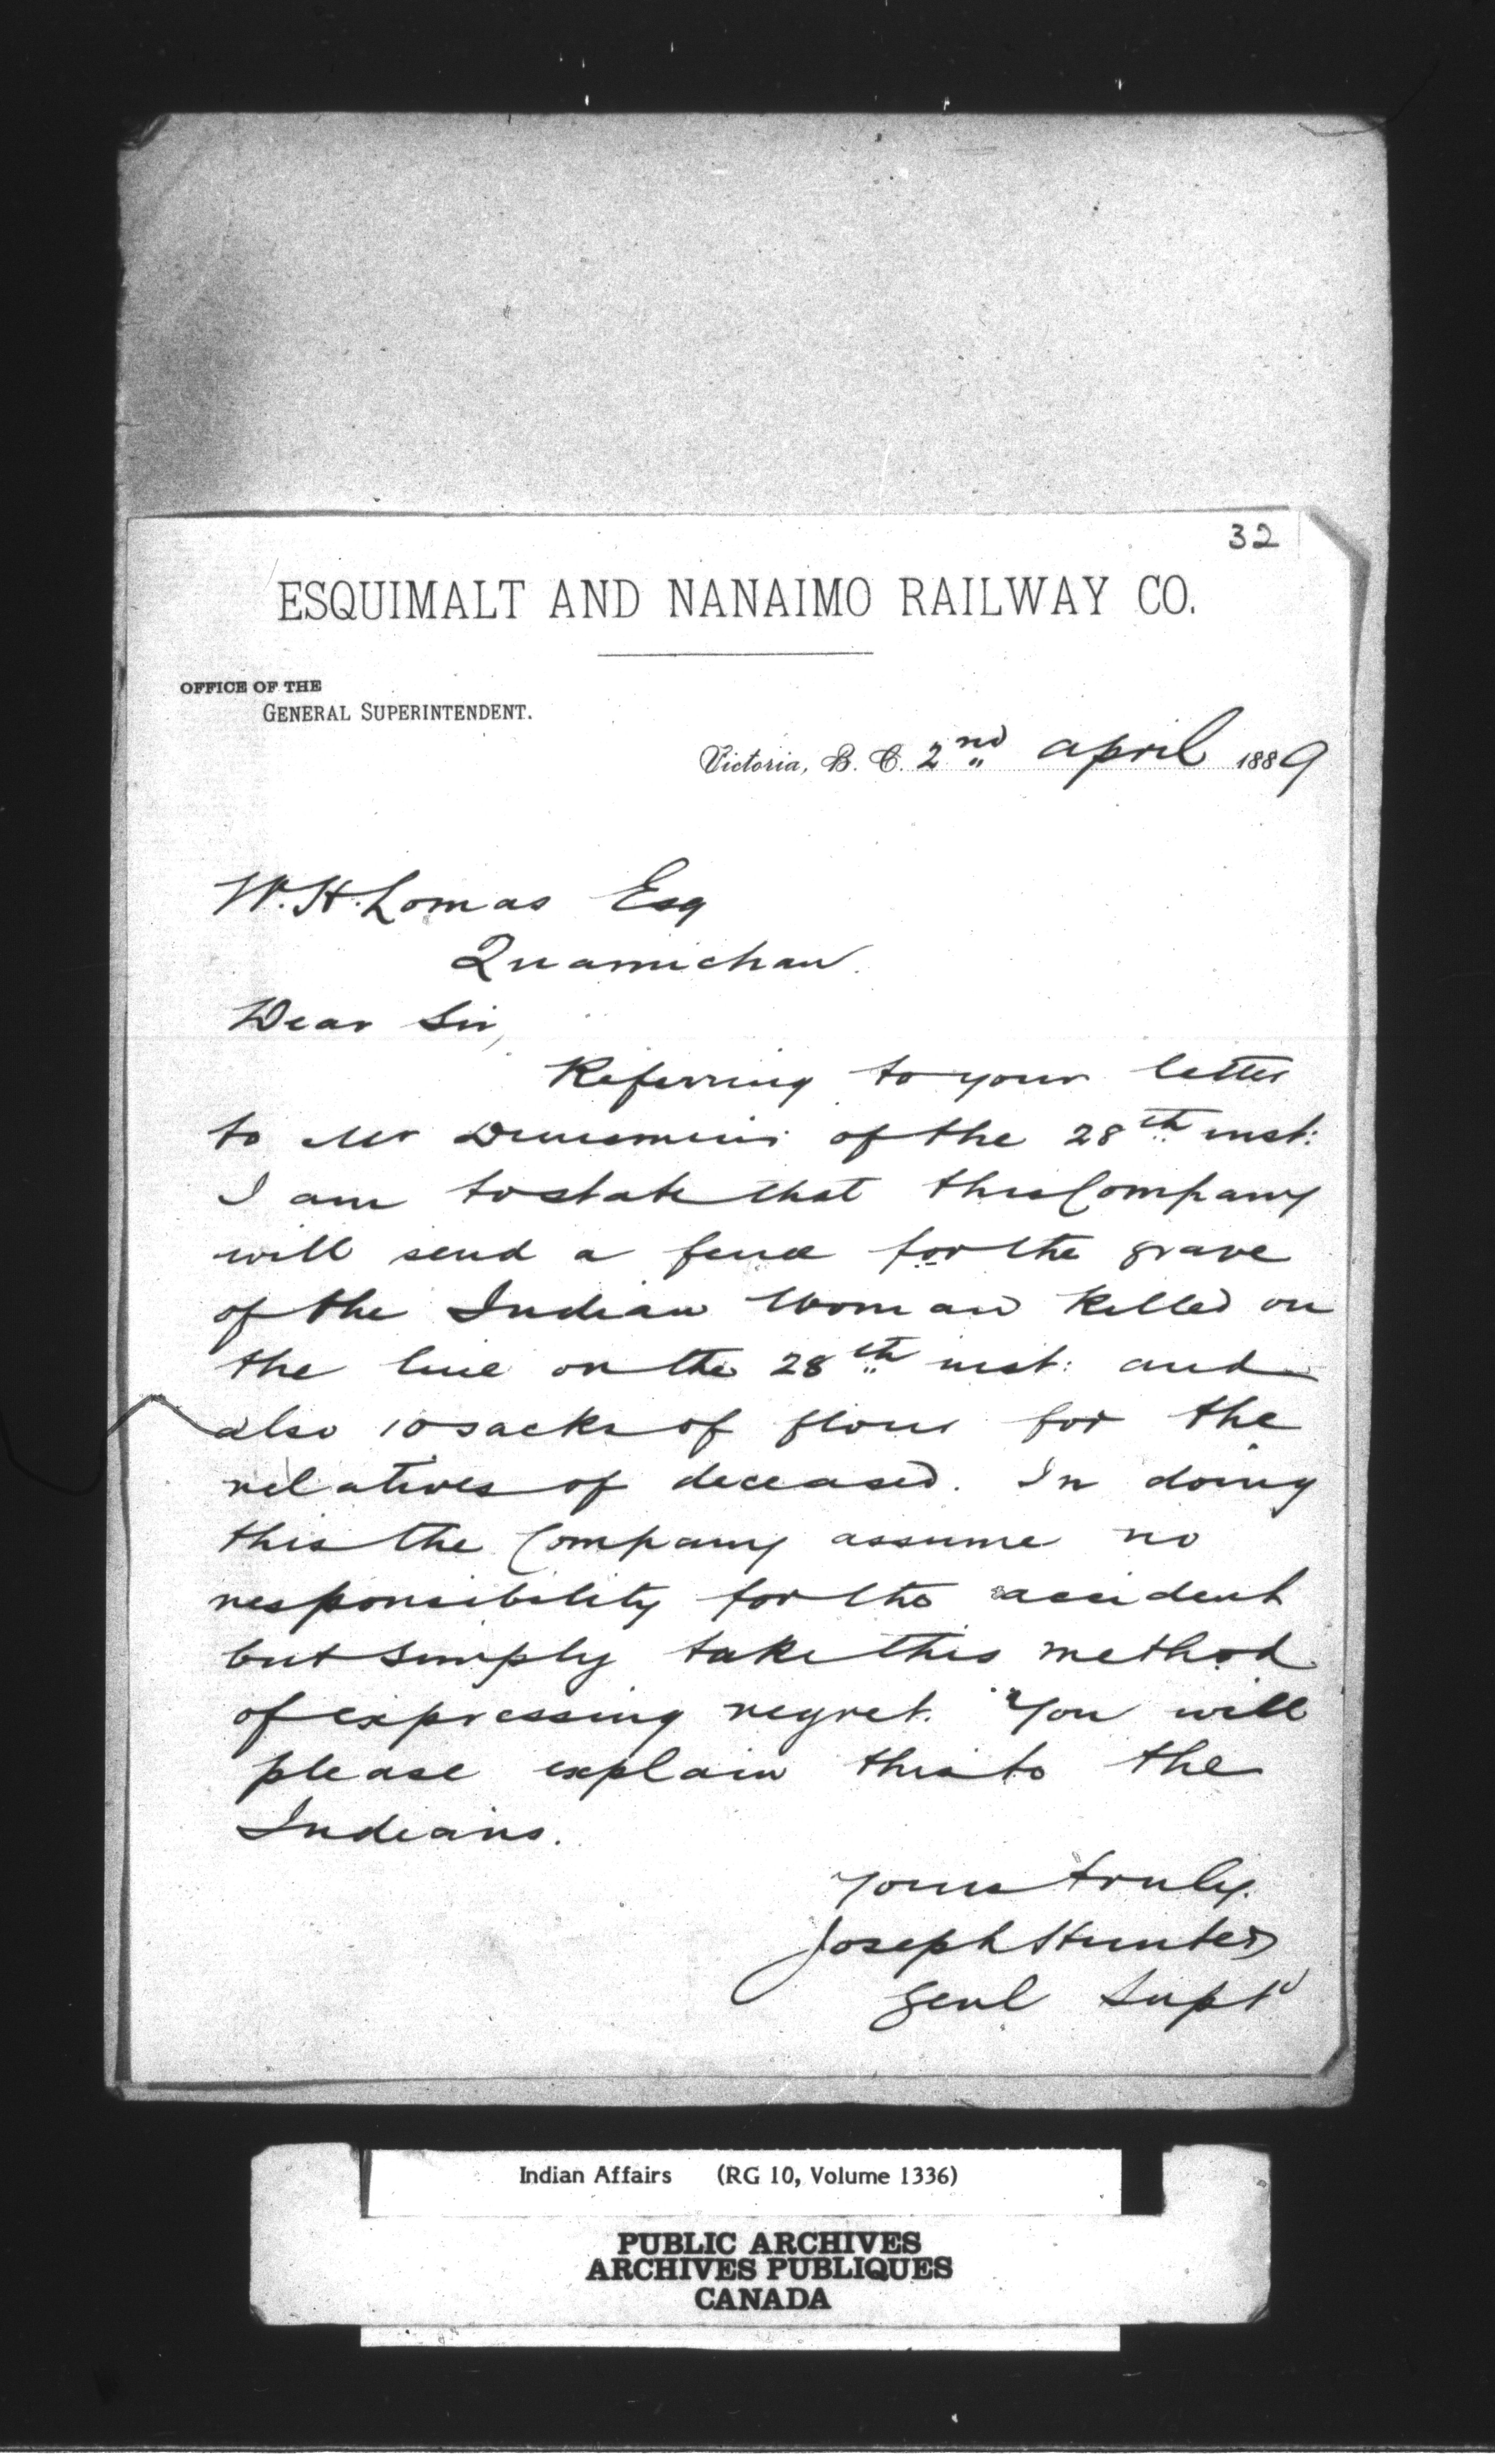 32
ESQUIMALT AND NANAIMO RAILWAY CO.
OFFICE OF THE
GENERAL SUPERINTENDENT.
Victoria, B. C. 2nd April 1889
W. H. Lomas Esq
Quamichan
Dear Sir,
Referring to your letter
to Mr Dunsmuir of the 28th inst:
I am to state that this Company
will send a fence for the grave
of the Indian Woman Killed on
the line on the 28th inst: and
also 10 sacks of flour for the
relatives of deceased. In doing
this the Company assume no
responsibility for the accident
but simply take this method
of expressing regret. You will
please explain this to the
Indians.
Yours truly.
Joseph Hunter
Genl Supt
Indian Affairs (RG 10, Volume 1336)
PUBLIC ARCHIVES
ARCHIVES PUBLIQUES
CANADA